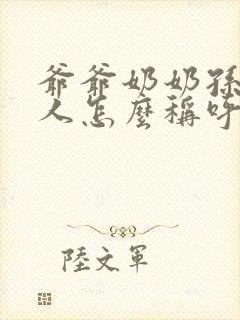 爺爺奶奶孫
人怎麼稱呼
陸文軍